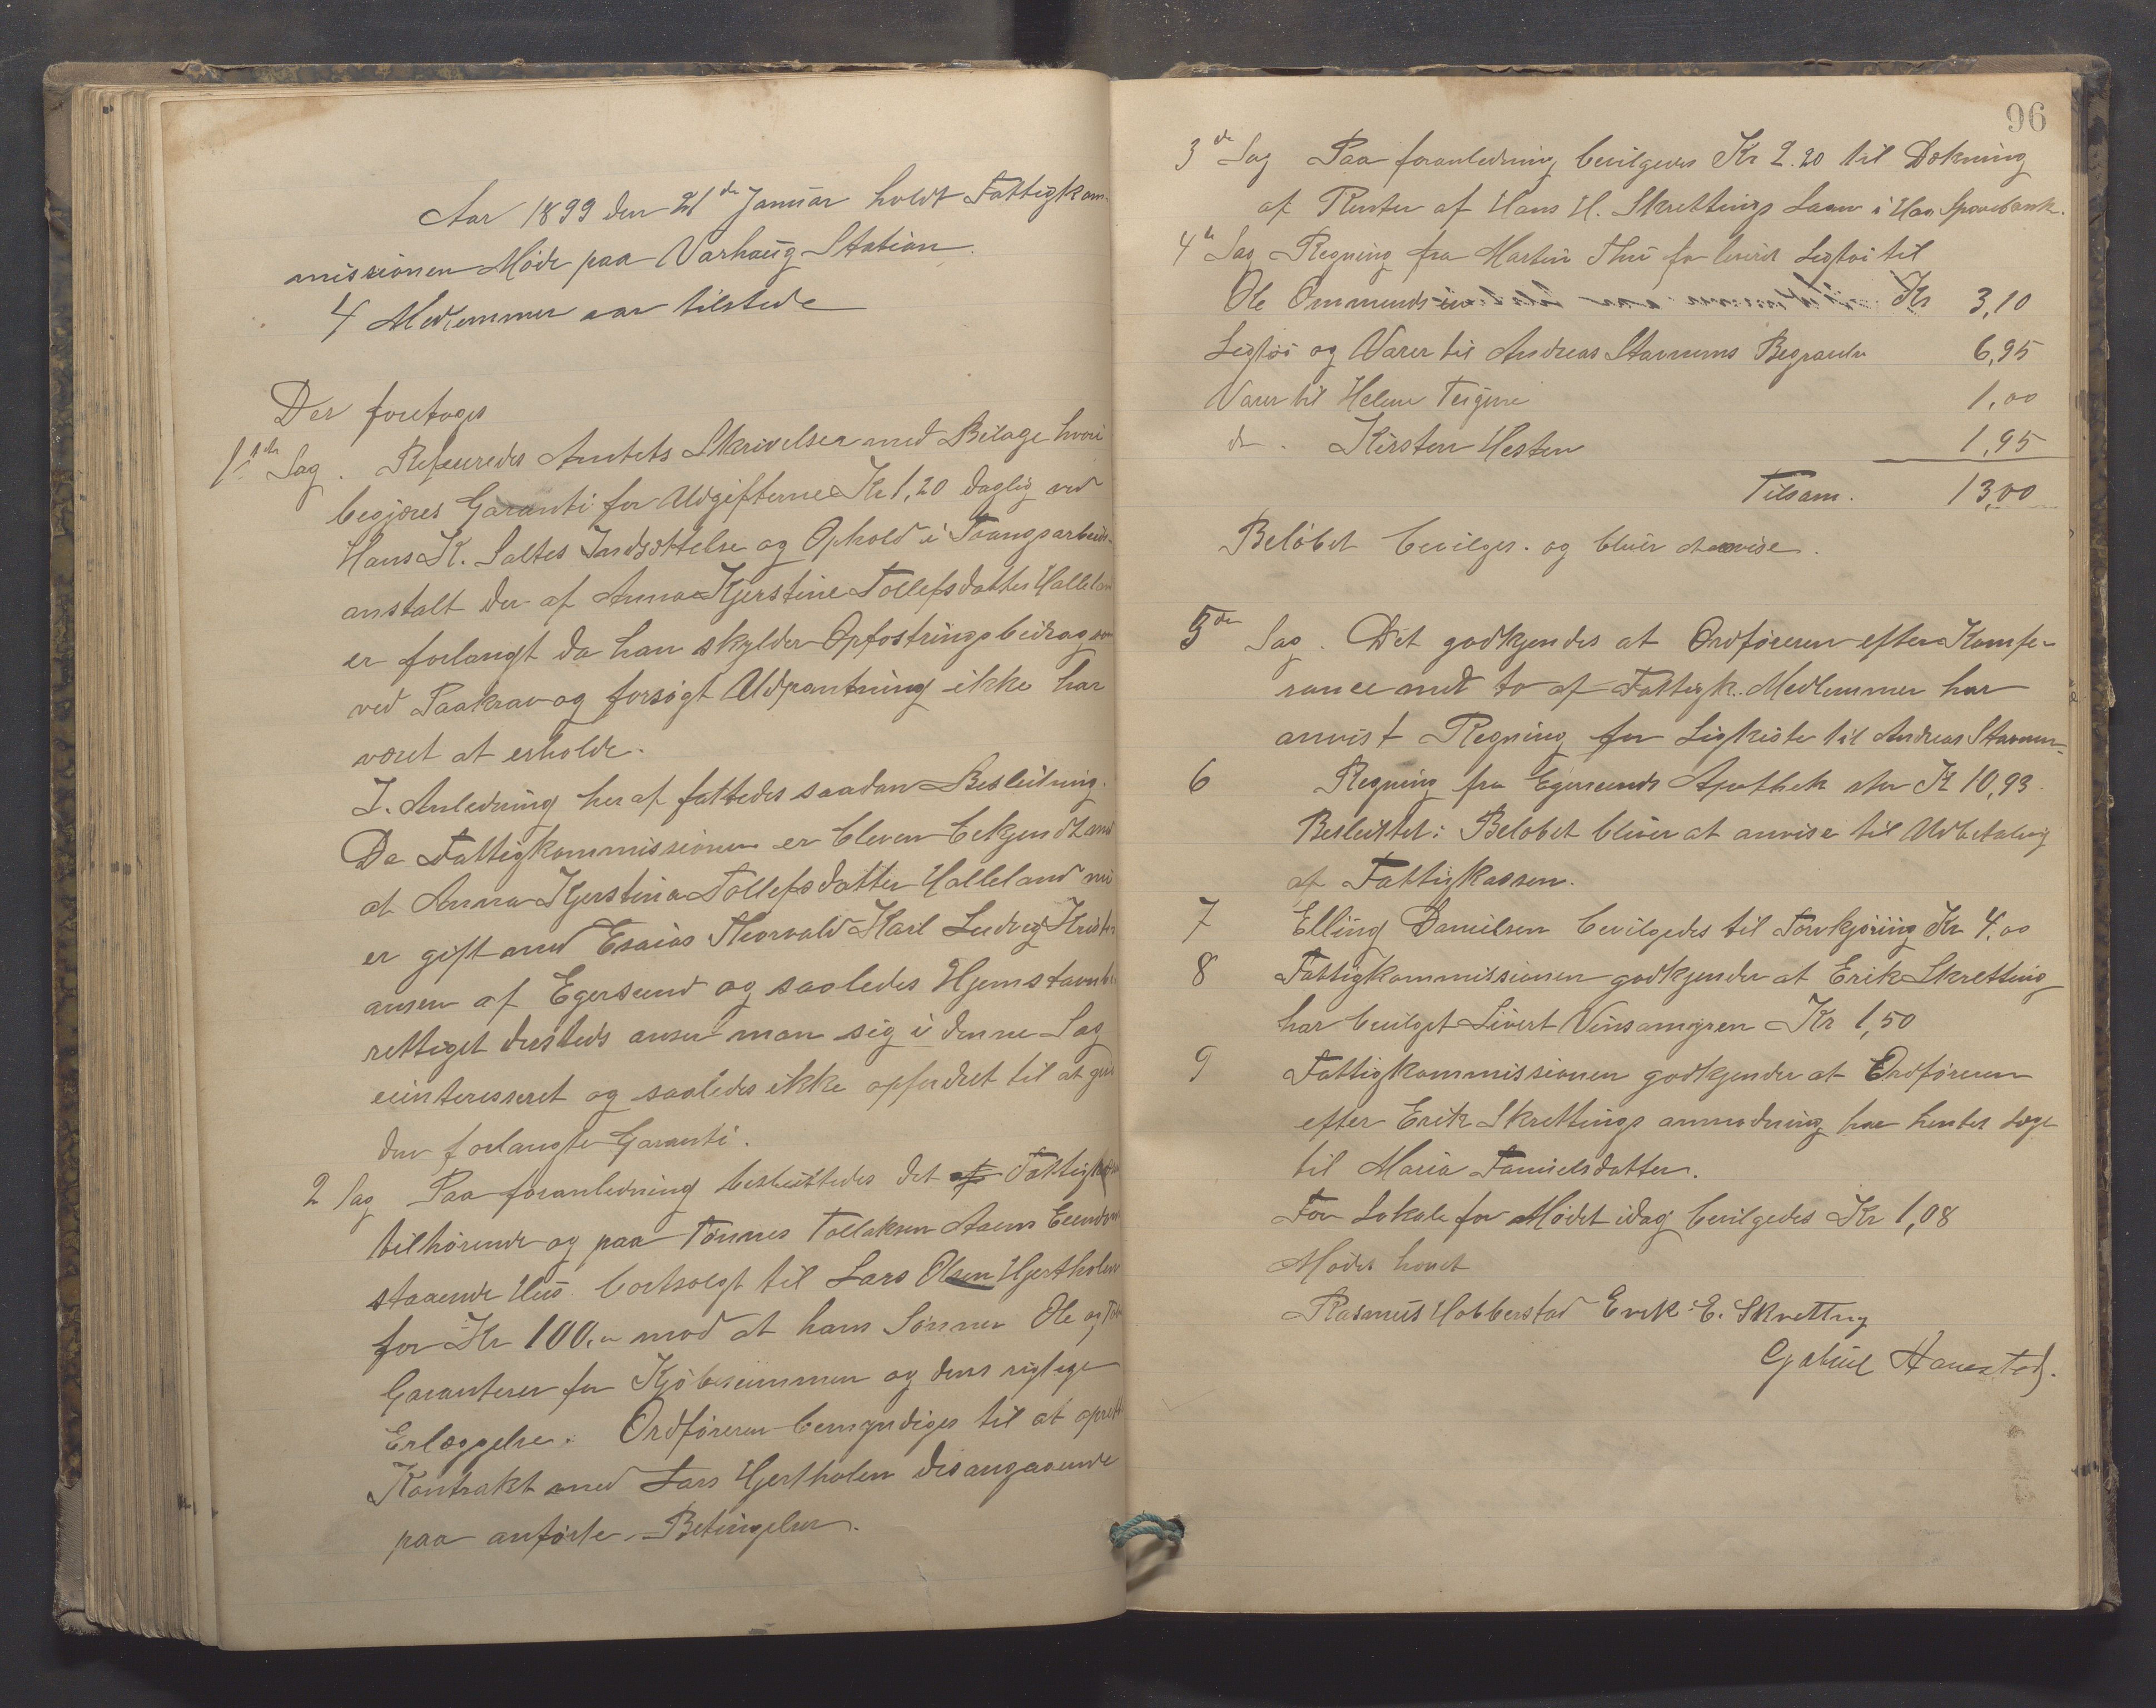 Aar 1899 den 21de Januar holdt Fattigkom-
missionen Møde paa Varhaug Station.
4 Medlemmer var tilstede
Der foretoges
1ste Sag. Refereredes Amtets Skrivelser med Bilage hvori
begjæres Garanti for Udgifterne Kr 1,20 daglig ved
Hans K. Saltes Indsættelse og Ophold i Tvangsarbeids-
anstalt der af Anna Kjerstine Tollefsdatter Halleland
er forlangt da han skylder Opfostringsbidrag som
ved Paakrav og forsøgt Udpantning ikke har
været at erholde.
I Anledning heraf fattedes saadan Beslutning.
Da Fattigkommissionen er bleven bekjendt med
at Anna Kjerstina Tollefsdatter Halleland nu
er gift med Esaias Thorvald Karl Ludvig Kristi-
ansen af Egersund og saaledes Hjemstavnbe-
rettiget dersteds anser man sig i denne Sag
uinteresseret og saaledes ikke opfordret til at give
den forlangte Garanti.
2 Sag Paa foranledning besluttedes det af Fattigk
tilhørende og paa Tønnes Tollaksen Aaens Eiendom
staaende Hus bortsolgt til Lars Olsen Hjertholen
for Kr 100,00 mod at hans Sønner Ole og
Garanterer for Kjøbesummen og dens rigtige
Erlæggelse. Ordføreren bemyndiges til at oprette
Kontrakt med Lars Hjertholen desangaaende
paa anførte Betingelser.
96
3de Sag Paa foranledning bevilgedes Kr 2.20 til Dækning
af Renter af Hans H. Skrettings Laan i Haa Sparebank.
4de Sag Regning fra Martin Thu for leveret Ligtøi til
Ole Ommundsen Kr 3,10
Ligtøi og Varer til Andreas Stavnems Begravelse 6,95
Varer til Helene Teigene 1,00
do. Kirsten Hesten 1,95
Tilsam. 13,00
Beløbet bevilges. og bliver at anvise.
5de Sag. Det godkjendes at Ordføreren efter Konfe-
rance med to af Fattigk. Medlemmer har
anvist Regning for Ligkiste til Andreas Stavnem.
6 Regning fra Egersunds Apothek stor Kr 10,93.
Besluttet: Beløbet bliver at anvise til Udbetaling
af Fattigkassen.
7 Elling Danielsen bevilgedes til Torvkjøring Kr 4,00
8 Fattigkommissionen godkjender at Erik Skretting
har bevilget Sivert Vinsamyren Kr 1,50
9 Fattigkommissionen godkjender at Ordføreren
efter Erik Skrettings anmodning har hentet Læge
til Maria Danielsdatter.
For Lokale for Mødet idag bevilgedes Kr 1,08
Mødet hævet
Rasmus Hobberstad Erik E. Skretting
Gabriel Haarstad.